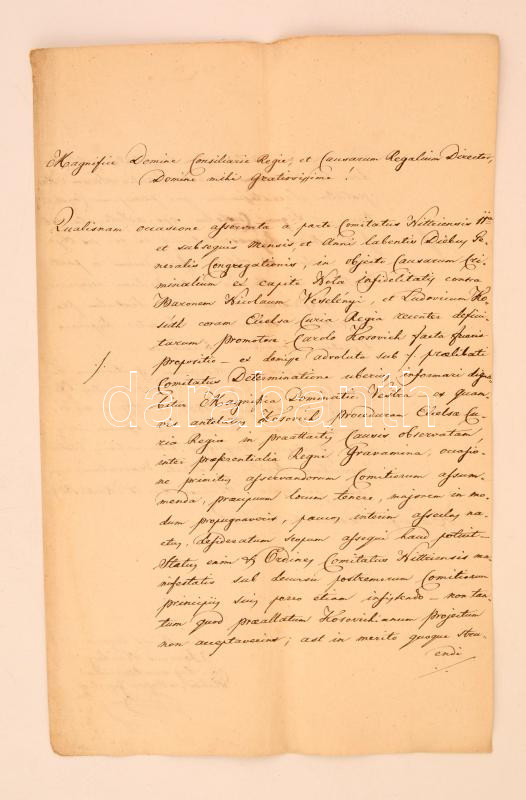 Magnifice Domine Consiliarie Regie, et Causarum Regalium Director,
Domine mihi Gratiosissime!
Qualisnam occasione asservata a parte Comitatus Nittriensis 11a
et subsequis Mensis, et Anni labentis Diebus Ge-
neralis Congregationis, in objecto Causarum Cri-
minalium ex capite Nota infidelitatis contra
Baronem Nicolaum Veselényi, et Ludovicum Ko-
súth coram Excelsa Curia Regia recenter defini-
tarum, promotore Carolo Kosovich facta fuerit
propositio – ex demisse advoluta sub ·/. praelibati
·/.
Comitatus Determinatione uberius informari digna-
bitur Magnifica Dominatio Vestra – ex quam-
vis antelatus Kosovich Proceduram Excelsae Cu-
riae Regiae in praattactis Causis observatam,
inter praeferentialia Regni Gravamina, occasio-
ne primitus asservandorum Comitiorum assum-
menda, praecipuum locum tenere, majorem in mo-
dum propugnaverit, paucos interim asseclas na-
ctus, desideratum scopum assequi haud potuit –
Status enim & Ordines Comitatus Nittriensis ma-
nifestatis sub decursu postremorum Comitiorum
principiis suis porro etiam insistendo – non tan-
tum quod praeallatum Kosovichianum Projectum
non acceptaverint; ast in merito quoque stru-
endi
darabanth